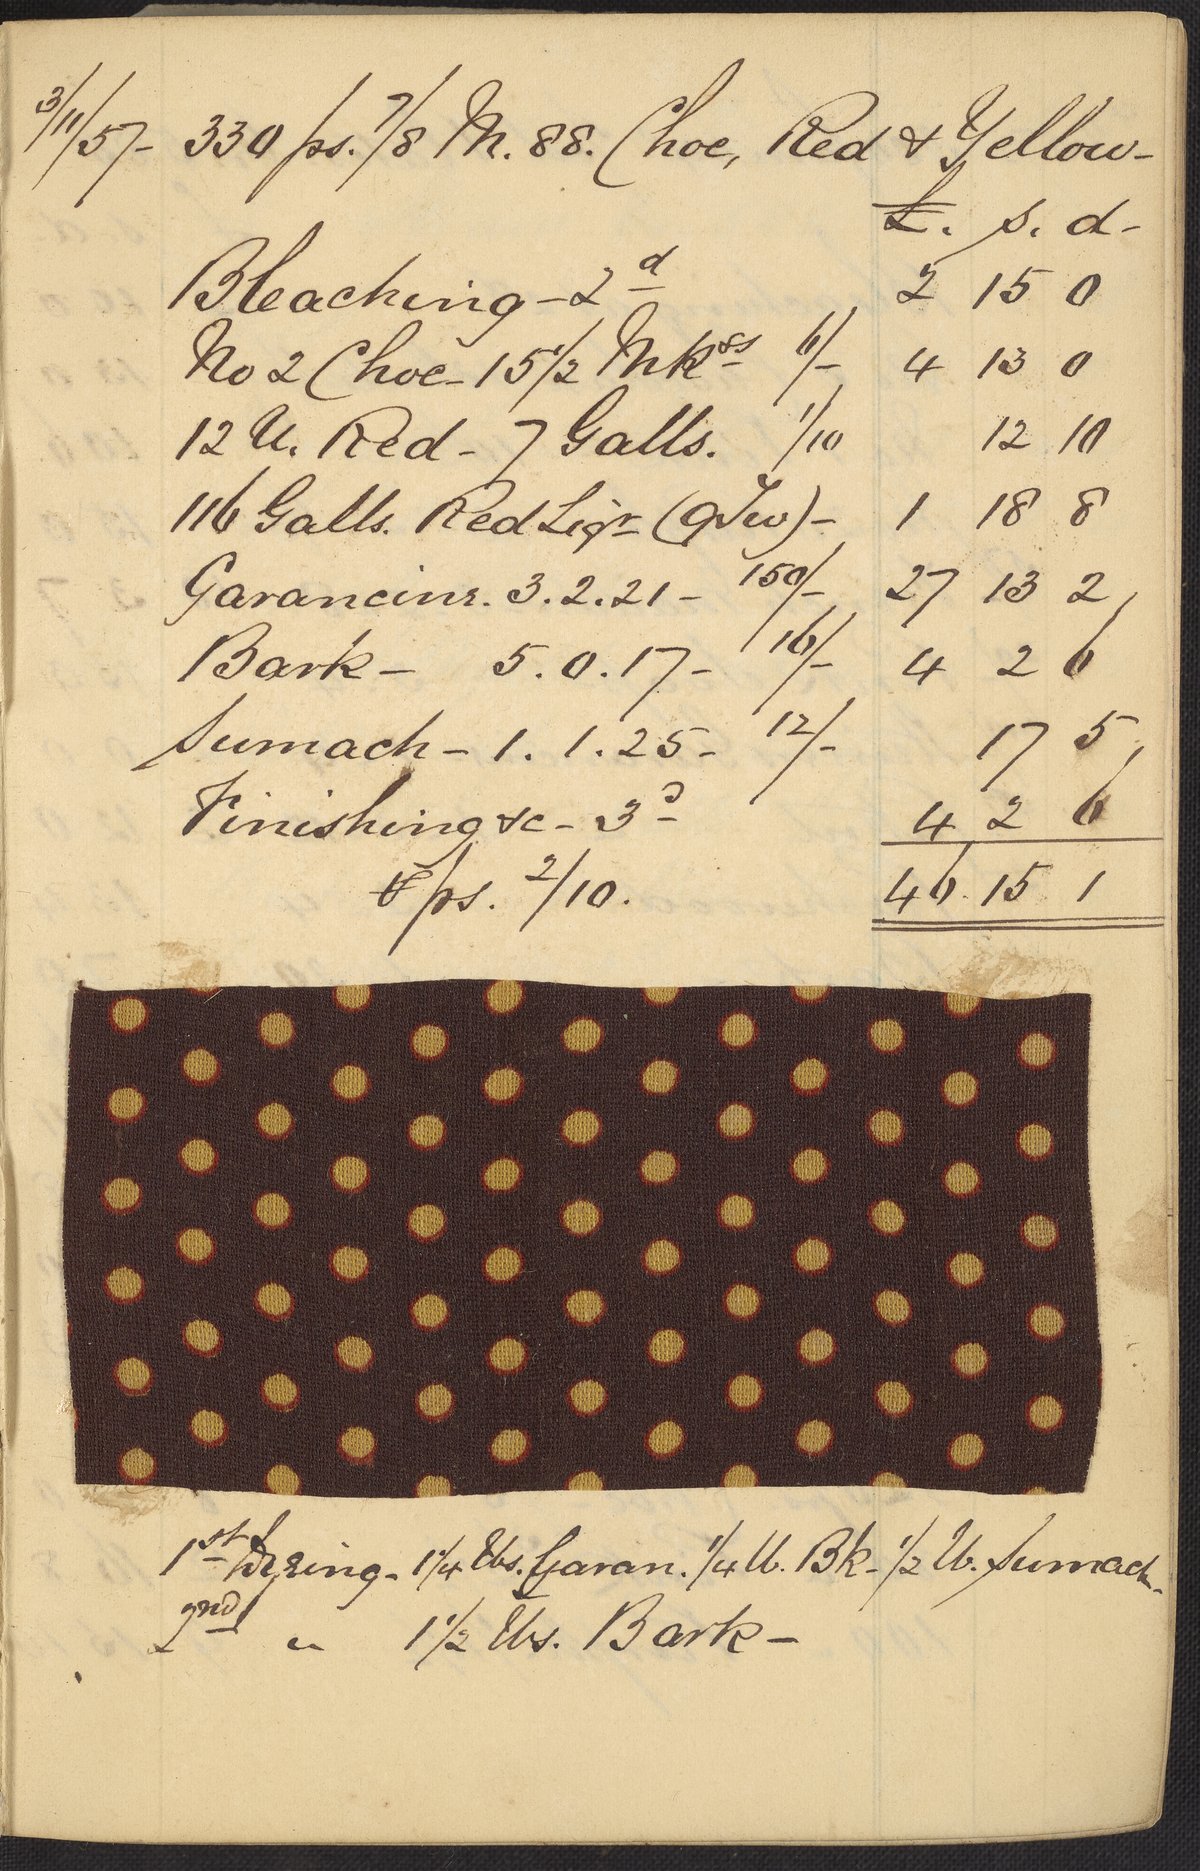 3/11/57- 330 ps. 7/8 M. 88. Choc, Red & Yellow-
£. s. d-
Bleaching - 2d 2 15 0
No 2 Choc - 15 1/2 Mkgs 6/- 4 13 0
12 U. Red - 7 Galls. 1/10 12 10
116 Galls. Red Liqr (9Tw) - 1 18 8
Garancine. 3.2.21 - 150/- 27 13 2
Bark - 5.0.17 - 16/- 4 2 6
Sumach - 1.1.25 - 12/- 17 5
Finishing &c - 3d 4 2 6
ps. 2/10. 46.15 1
1st Dyeing - 1 1/4 lbs. Garan. 1/4 lb. Bk - 1/2 lb. Sumach -
2nd " 1 1/2 lbs. Bark -